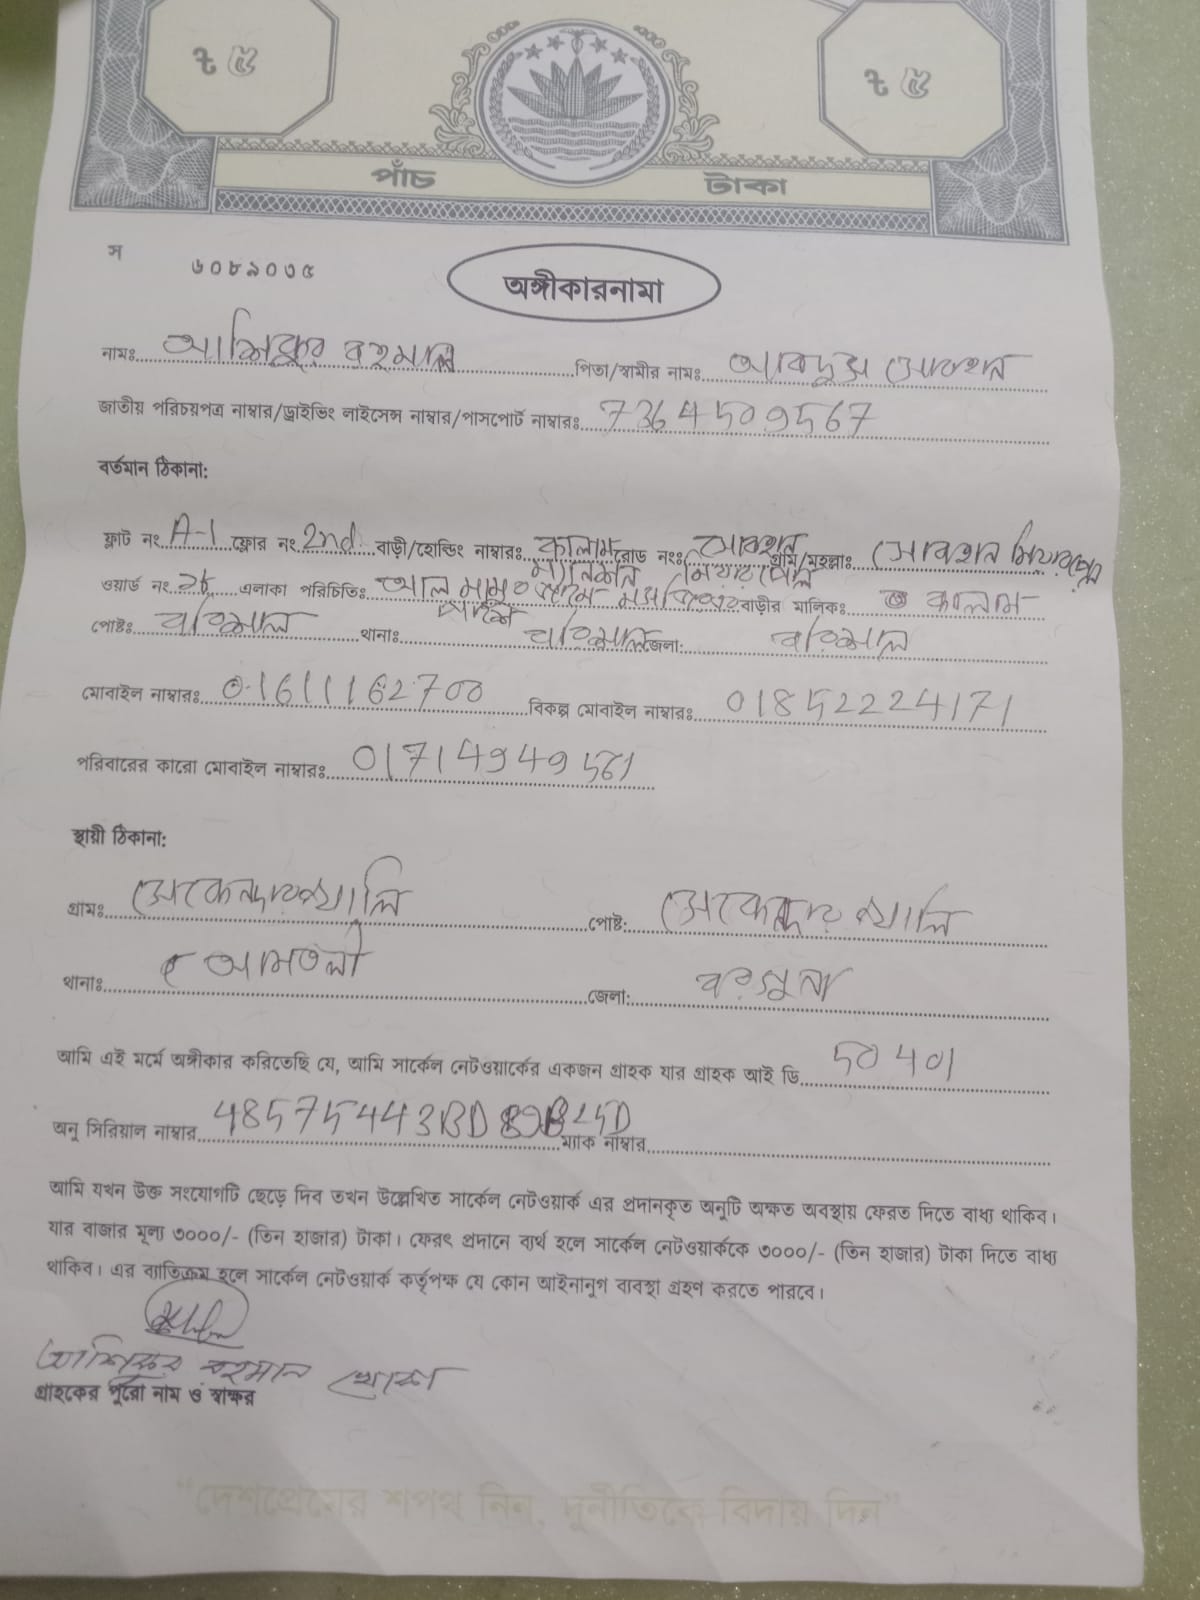 ৳ ৫ ৳ ৫
পাঁচ টাকা
স ৬০৮৯০৩৫
অঙ্গীকারনামা
নামঃ আশিকুর রহমান পিতা/স্বামীর নামঃ আবদুস সোবহান
জাতীয় পরিচয়পত্র নাম্বার/ড্রাইভিং লাইসেন্স নাম্বার/পাসপোর্ট নাম্বারঃ 7364509567
বর্তমান ঠিকানা:
ফ্লাট নং A-1 ফ্লোর নং 2nd বাড়ী/হোল্ডিং নাম্বারঃ কালাম রোড নংঃ সোবহান গ্রাম/মহল্লাঃ সোবহান মিয়ার পোল
ম্যানশন মিয়ার পোল
ওয়ার্ড নং এলাকা পরিচিতিঃ আল মামুর জামে মসজিদের বাড়ীর মালিকঃ কালাম
পোষ্টঃ বরিশাল থানাঃ বরিশাল জেলা: বরিশাল
মোবাইল নাম্বারঃ 01611162700 বিকল্প মোবাইল নাম্বারঃ 01852224171
পরিবারের কারো মোবাইল নাম্বারঃ 01714949561
স্থায়ী ঠিকানা:
গ্রামঃ সেকেন্দারখালি পোষ্টঃ সেকেন্দারখালি
থানাঃ আমতলী জেলা: বরগুনা
আমি এই মর্মে অঙ্গীকার করিতেছি যে, আমি সার্কেল নেটওয়ার্কের একজন গ্রাহক যার গ্রাহক আই ডি 50401
অনু সিরিয়াল নাম্বার 48575443BD89B25D ম্যাক নাম্বার
আমি যখন উক্ত সংযোগটি ছেড়ে দিব তখন উল্লেখিত সার্কেল নেটওয়ার্ক এর প্রদানকৃত অনুটি অক্ষত অবস্থায় ফেরত দিতে বাধ্য থাকিব।
যার বাজার মূল্য ৩০০০/- (তিন হাজার) টাকা। ফেরৎ প্রদানে ব্যর্থ হলে সার্কেল নেটওয়ার্ককে ৩০০০/- (তিন হাজার) টাকা দিতে বাধ্য
থাকিব। এর ব্যতিক্রম হলে সার্কেল নেটওয়ার্ক কর্তৃপক্ষ যে কোন আইনানুগ ব্যবস্থা গ্রহণ করতে পারবে।
আশিকুর রহমান খোকা
গ্রাহকের পুরো নাম ও স্বাক্ষর
“দেশপ্রেমের শপথ নিন, দুর্নীতিকে বিদায় দিন”